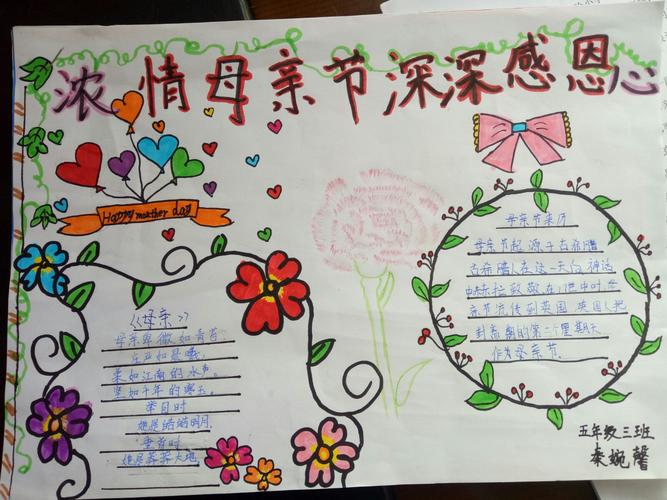 浓情母亲节深深感恩心
Happy mother day
《母亲》
母亲啊微如青苔
庄严如晨曦
柔如江南的水声
坚如千年的寒玉
举目时
她是皓皓明月
垂首时
她是莽莽大地
母亲节来历
母亲节起源于古希腊
古希腊人在这一天向神话
中赫拉致敬在17世中叶母
亲节流传到英国英国人把
封斋期的第二个星期天
作为母亲节
五年级三班
秦婉馨